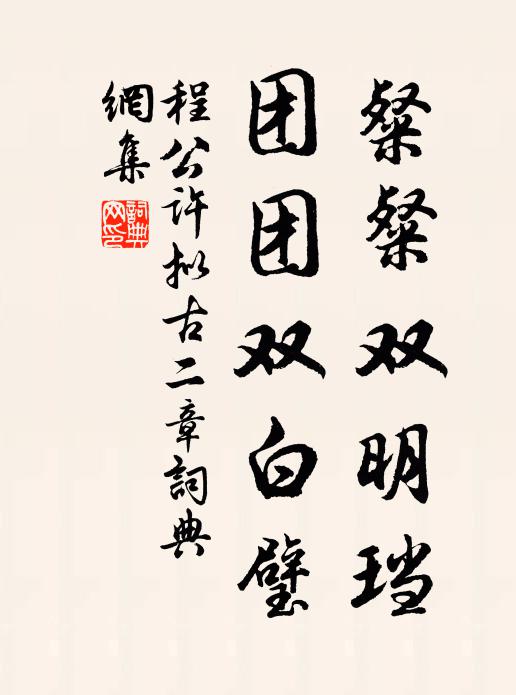 粲粲双明珰
团团双白璧
程公许拟古二章詞典
網集
詞典網印